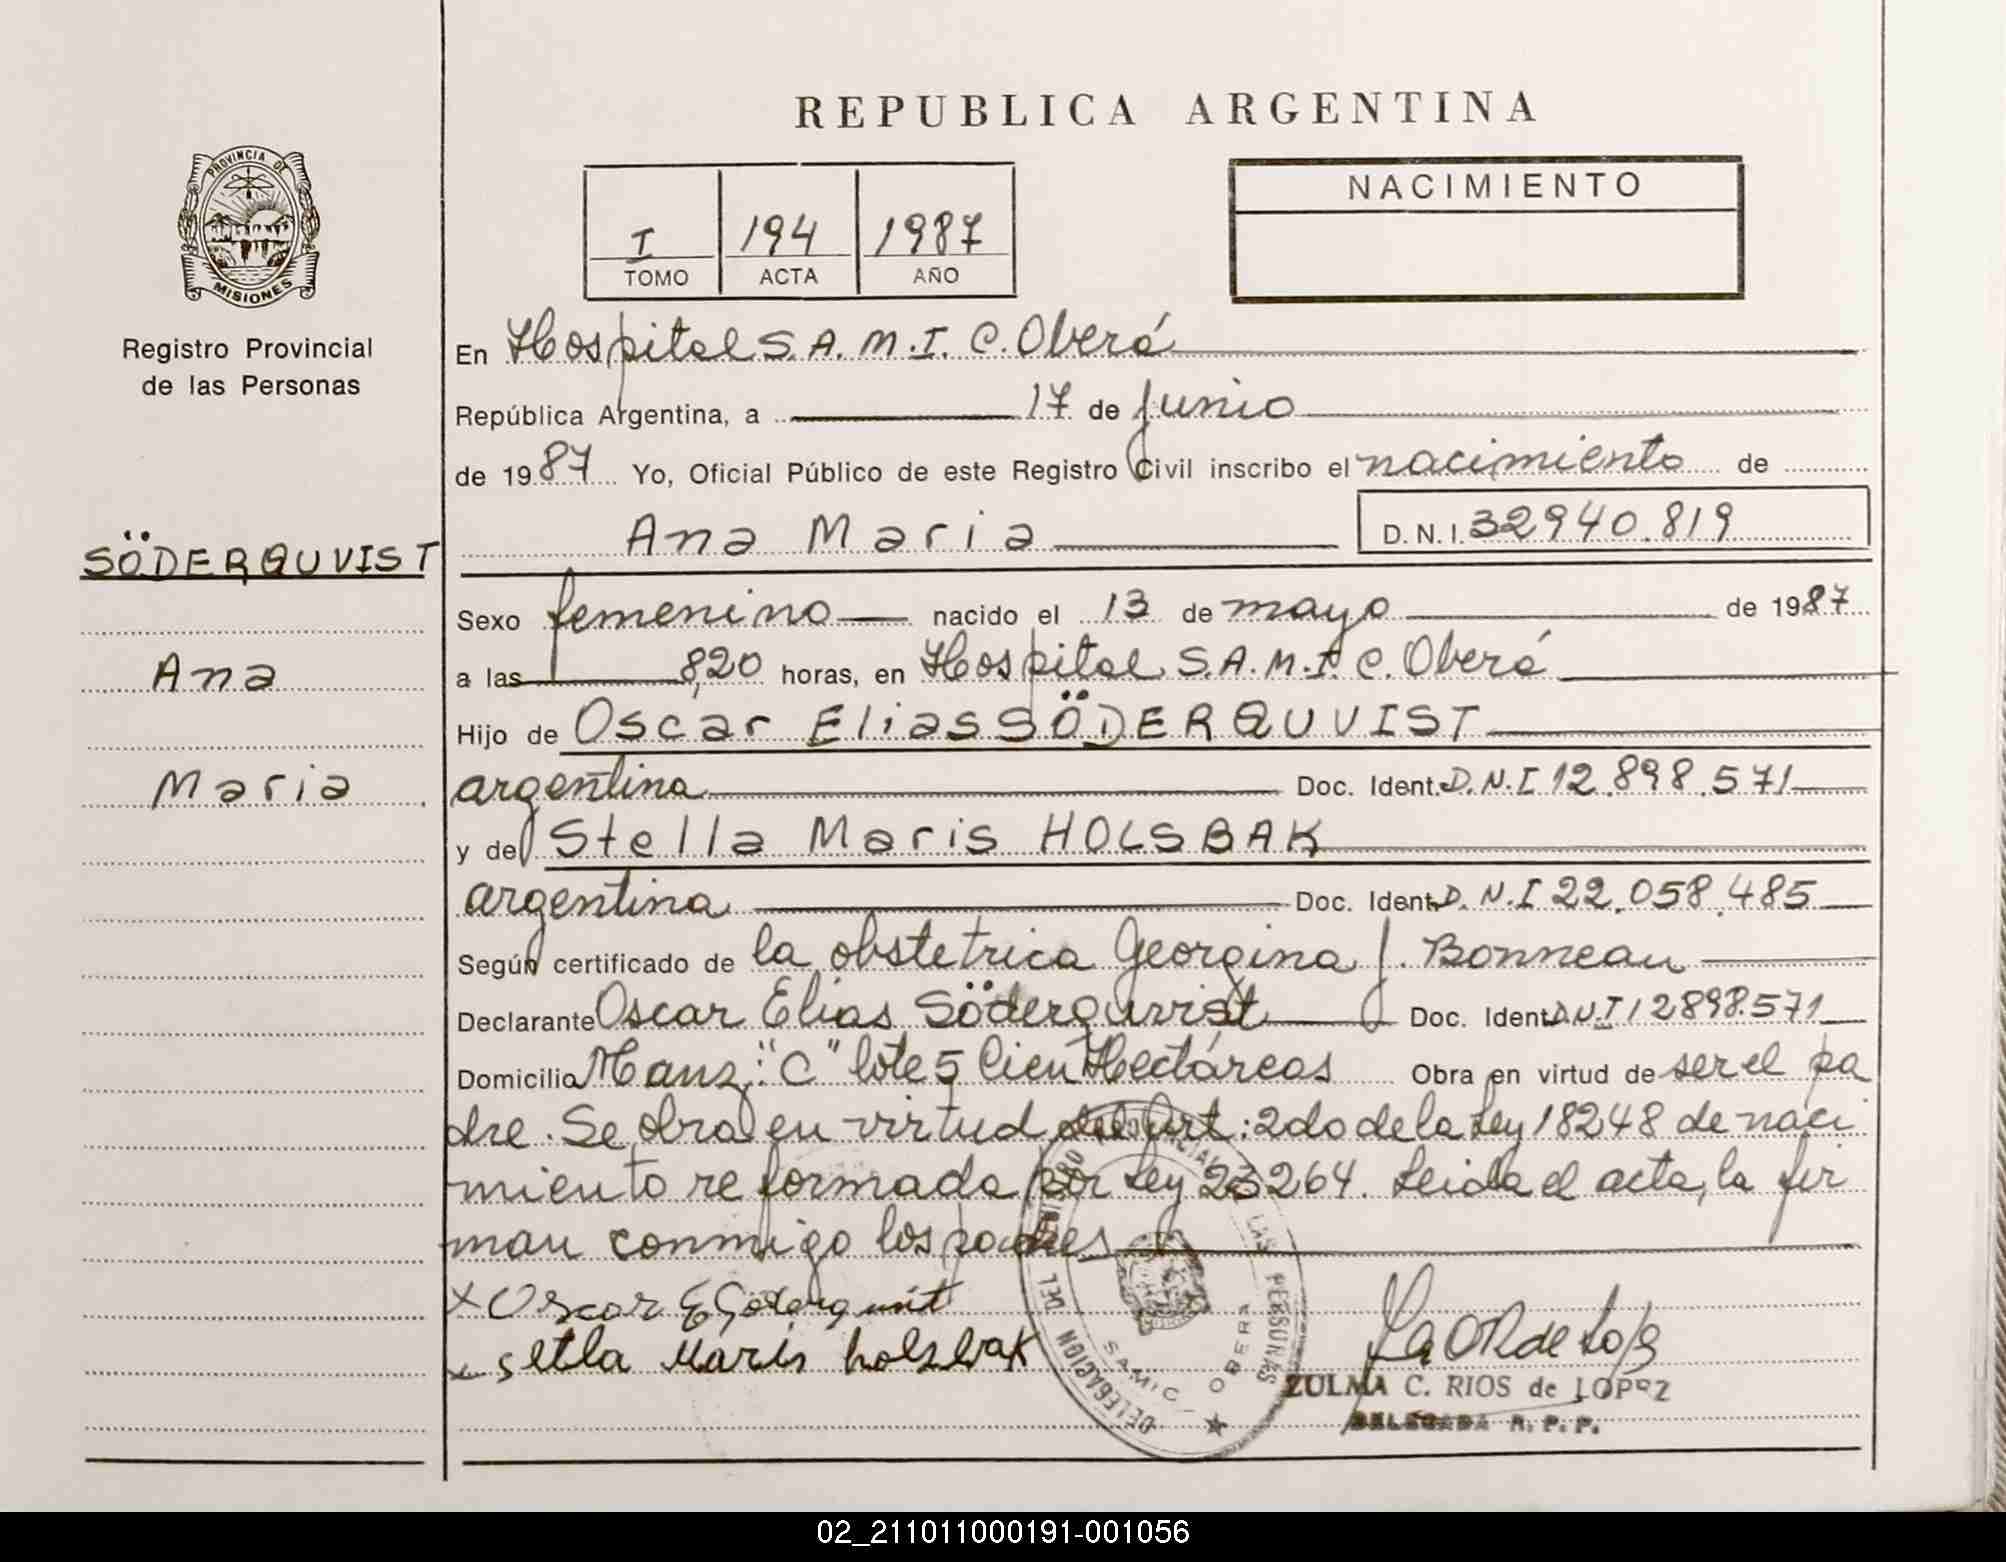 REPUBLICA ARGENTINA
PROVINCIA DE
MISIONES
Registro Provincial
de las Personas
I 194 1987
TOMO ACTA AÑO
NACIMIENTO
En Hospital S.A.M.I.C. Oberá
República Argentina, a 17 de Junio
de 1987 Yo, Oficial Público de este Registro Civil inscribo el nacimiento de
Ana Maria D.N.I. 32940.819
SÖDERQUVIST
Ana
Maria
Sexo femenino nacido el 13 de mayo de 1987
a las 8,20 horas, en Hospital S.A.M.I.C. Oberá
Hijo de Oscar Elias SÖDERQUVIST
argentina Doc. Ident. D.N.I 12.898.571
y de Stella Maris HOLSBAK
argentina Doc. Ident. D.N.I 22.058.485
Según certificado de la obstetrica Georgina J. Bonneau
Declarante Oscar Elias Söderquvist Doc. Ident. D.N.I 12898.571
Domicilio Manz: "C" lote 5 Cien Hectáreas Obra en virtud de ser el pa
dre. Se obra en virtud del Art: 2do de la Ley 18248 de naci
miento reformada por Ley 23264. Leida el acta, la fir
man conmigo los padres
x Oscar E Söderquvist
x Stella Maris holsbak
DELEGACION DEL REGISTRO PROVINCIAL DE LAS PERSONAS
SAMIC - OBERA
ZULMA C. RIOS de LOPEZ
DELEGADA R.P.P.
02_211011000191-001056